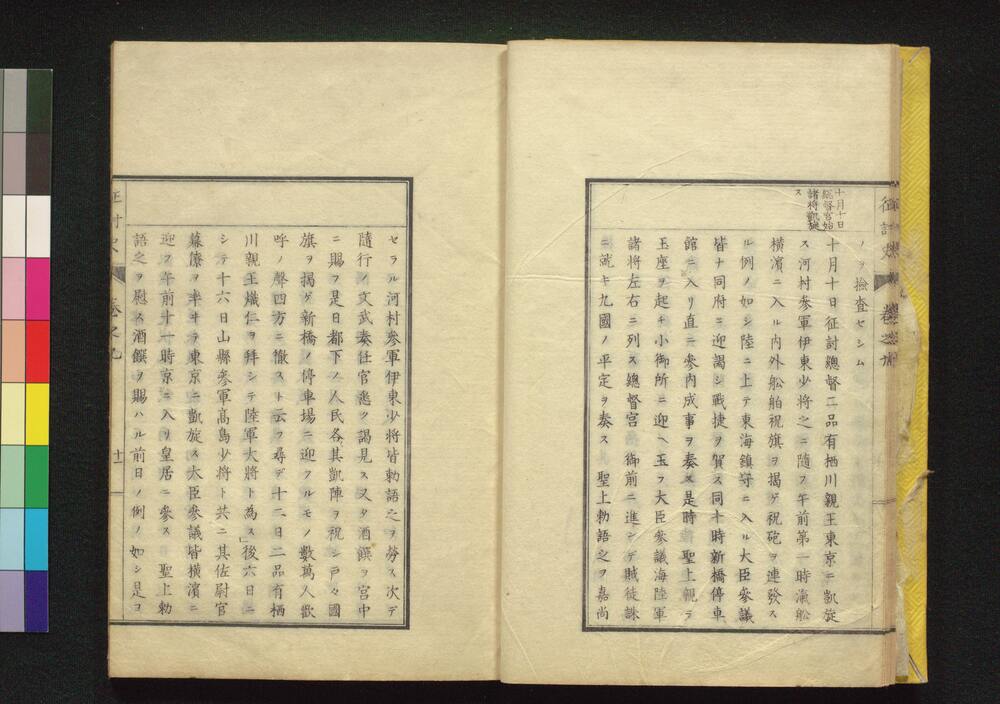 征討史 卷之九
ノヲ撿査セシム
十月十日
總督宮始
諸將凱旋
ス
十月十日征討總督二品有栖川親王東京ニ凱旋
ス河村參軍伊東少將之ニ隨フ午前第一時滊船
橫濱ニ入ル内外船舶祝旗ヲ揭ゲ祝砲ヲ連發ス
ル例ノ如シ陸ニ上テ東海鎭守ニ入ル大臣參議
皆ナ同府ニ迎謁シ戰捷ヲ賀ス同十時新橋停車
館ニ入リ直ニ參内成事ヲ奏ス是時 聖上親ラ
玉座ヲ起チ小御所ニ迎ヘ玉フ大臣參議海陸軍
諸將左右ニ列ス總督宮 御前ニ進ンデ賊徒誅
ニ就キ九國ノ平定ヲ奏ス 聖上勅語之ヲ嘉尚
セラル河村參軍伊東少將皆勅語之ヲ勞ス次デ
隨行ノ文武奏任官悉ク謁見ス又タ酒饌ヲ宮中
ニ賜フ是日都下ノ人民各其凱陣ヲ祝シ戸々國
旗ヲ揭ゲ新橋ノ停車場ニ迎フルモノ數萬人歡
呼ノ聲四方ニ徹スト云フ尋デ十二日二品有栖
川親王熾仁ヲ拜シテ陸軍大將ト為ス」後六日ニ
シテ十六日山縣參軍高島少將ト共ニ其佐尉官
幕僚ヲ率キヲ東京ニ凱旋ス大臣參議皆橫濱ニ
迎フ午前十一時京ニ入リ皇居ニ參ス 聖上勅
語之ヲ慰ス酒饌ヲ賜ハル前日ノ例ノ如シ是ヨ
征討史 卷之九 十一